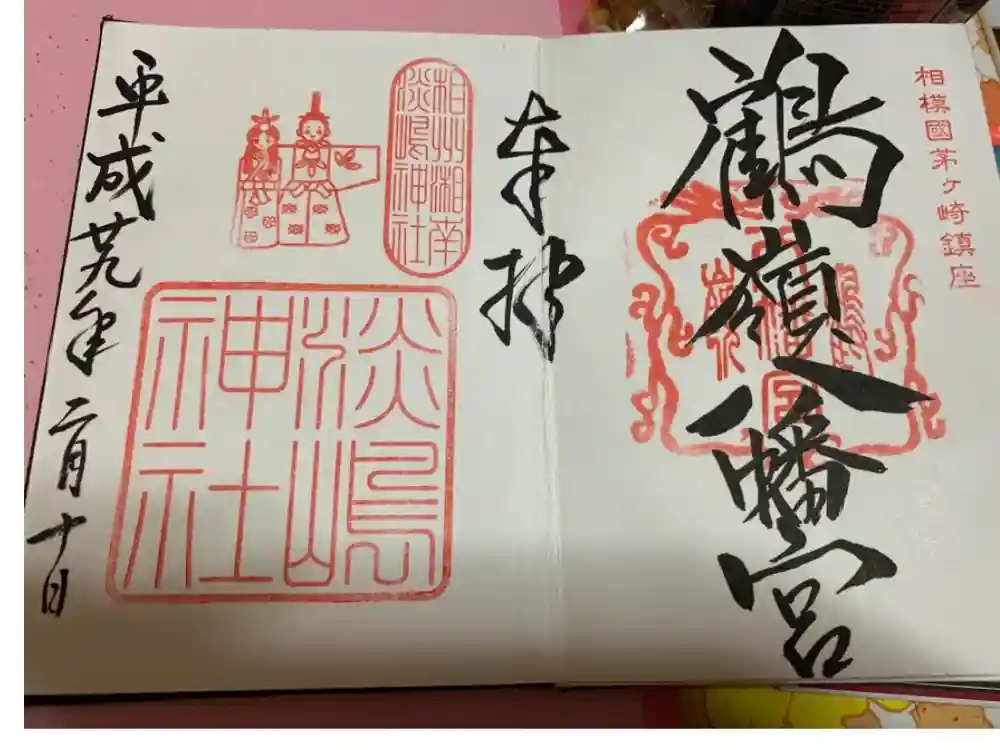 相模國茅ヶ崎鎮座
鶴嶺八幡宮
奉拝
相州湘南
淡嶋神社
淡嶋
神社
平成廿九年二月十日